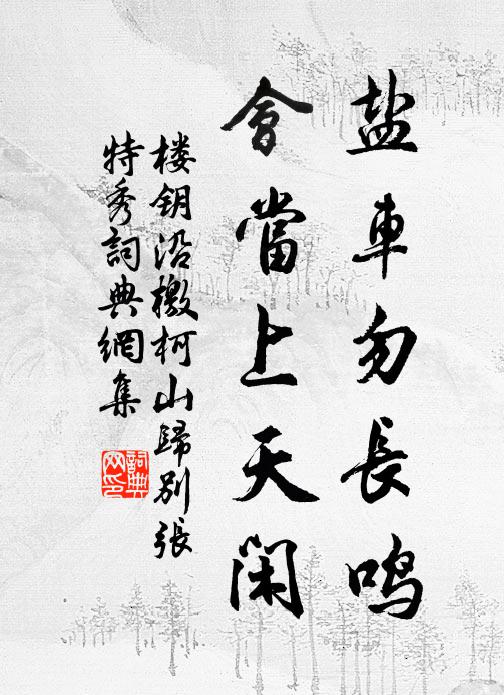 盐車勿長鸣
會當上天闲
楼钥沿檄柯山歸别張
特秀詞典網集
詞典网印